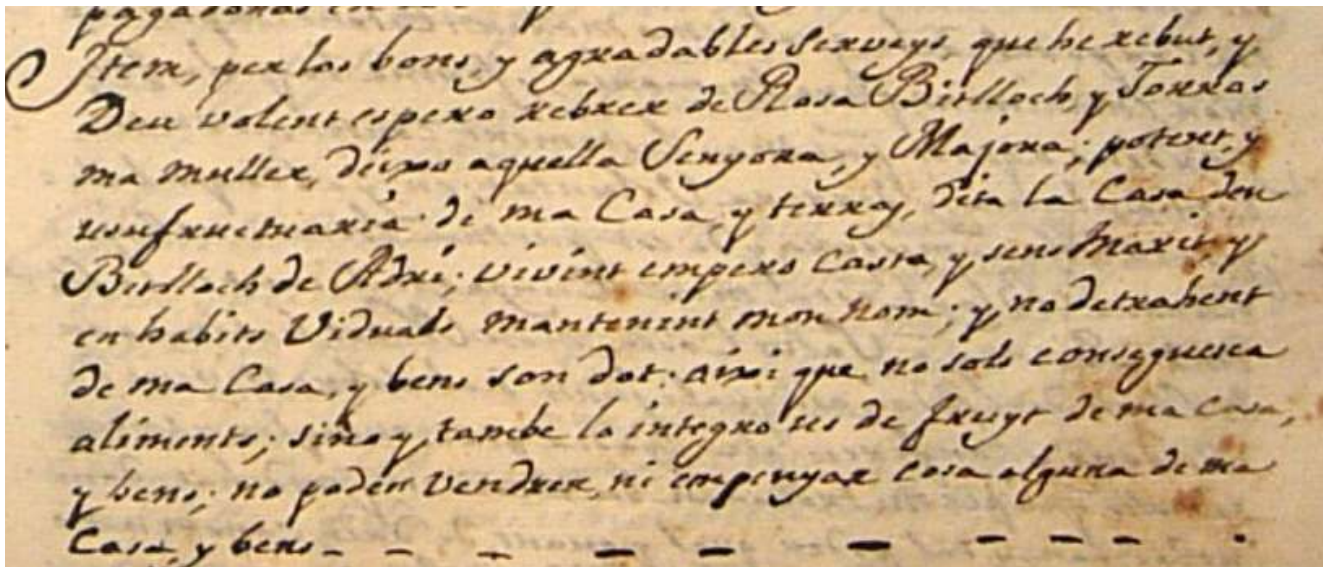 Item, per los bons, y agradables serveys, que he rebut, y
Deu volent espero rebrer de Rosa Birlloch, y Torras
ma muller, deixo aquella Senyora, y Majora; potent, y
usufructuaria de ma Casa, y terras, dita la Casa den
Birlloch de Adri; vivint empero casta, y sens marit, y
en habits Viduals mantenint mon nom; y no detrahent
de ma Casa, y bens son dot; aixi que no sols conseguesca
aliments; sino y tambe lo integro us de fruyt de ma casa,
y bens; no poden vendrer, ni empenyar cosa alguna de ma
Casa, y bens